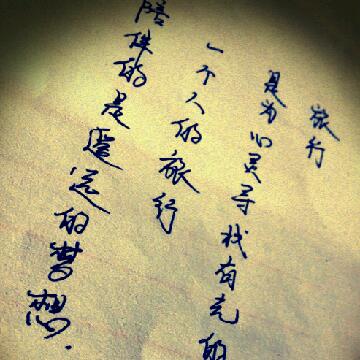 旅行
是为心灵寻找有光的
一个人的旅行
陪伴的是遥远的梦想.